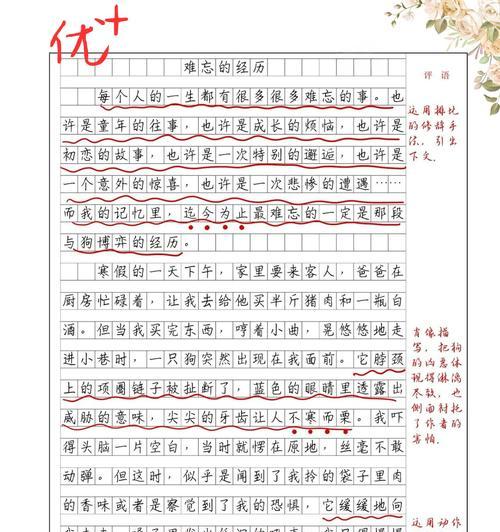 优+
难忘的经历
评语
每个人的一生都有很多很多难忘的事。也
许是童年的往事，也许是成长的烦恼，也许是
初恋的故事，也许是一次特别的邂逅，也许是
一个意外的惊喜，也许是一次悲惨的遭遇……
而我的记忆里，迄今为止最难忘的一定是那段
与狗博弈的经历。
运用排比
的修辞手
法，引出
下文.
寒假的一天下午，家里要来客人，爸爸在
厨房忙碌着，让我去给他买半斤猪肉和一瓶白
酒。但当我买完东西，哼着小曲，晃悠悠地走
进小巷时，一只狗突然出现在我面前。它脖颈
上的项圈链子被扯断了，蓝色的眼睛里透露出
威胁的意味，尖尖的牙齿让人不寒而栗。我吓
得头脑一片空白，当时就愣在原地，丝毫不敢
动弹。但这时，似乎是闻到了我拎的袋子里肉
的香味或者是察觉到了我的恐惧，它缓缓地向
肖像描
写，把狗
的凶恶体
现得淋漓
尽致，也
侧面衬托
了作者的
害怕.
这用动作